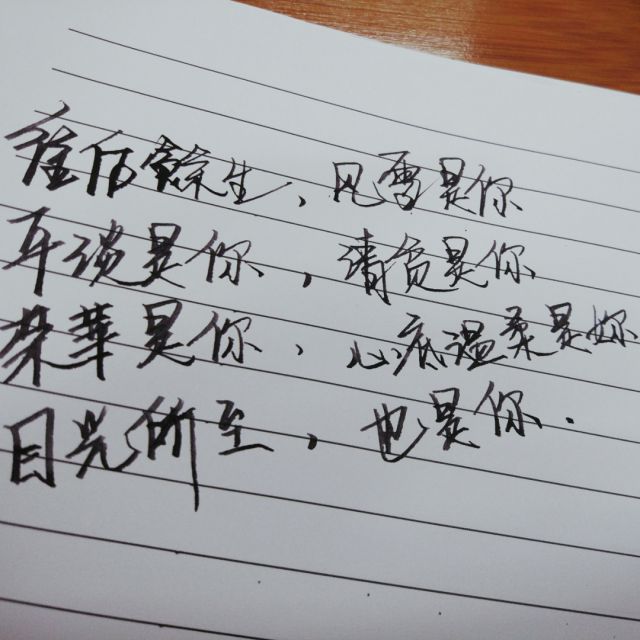 往后餘生、风雪是你
平淡是你，清贫是你、
荣華是你、心底温柔是你
目光所至，也是你.